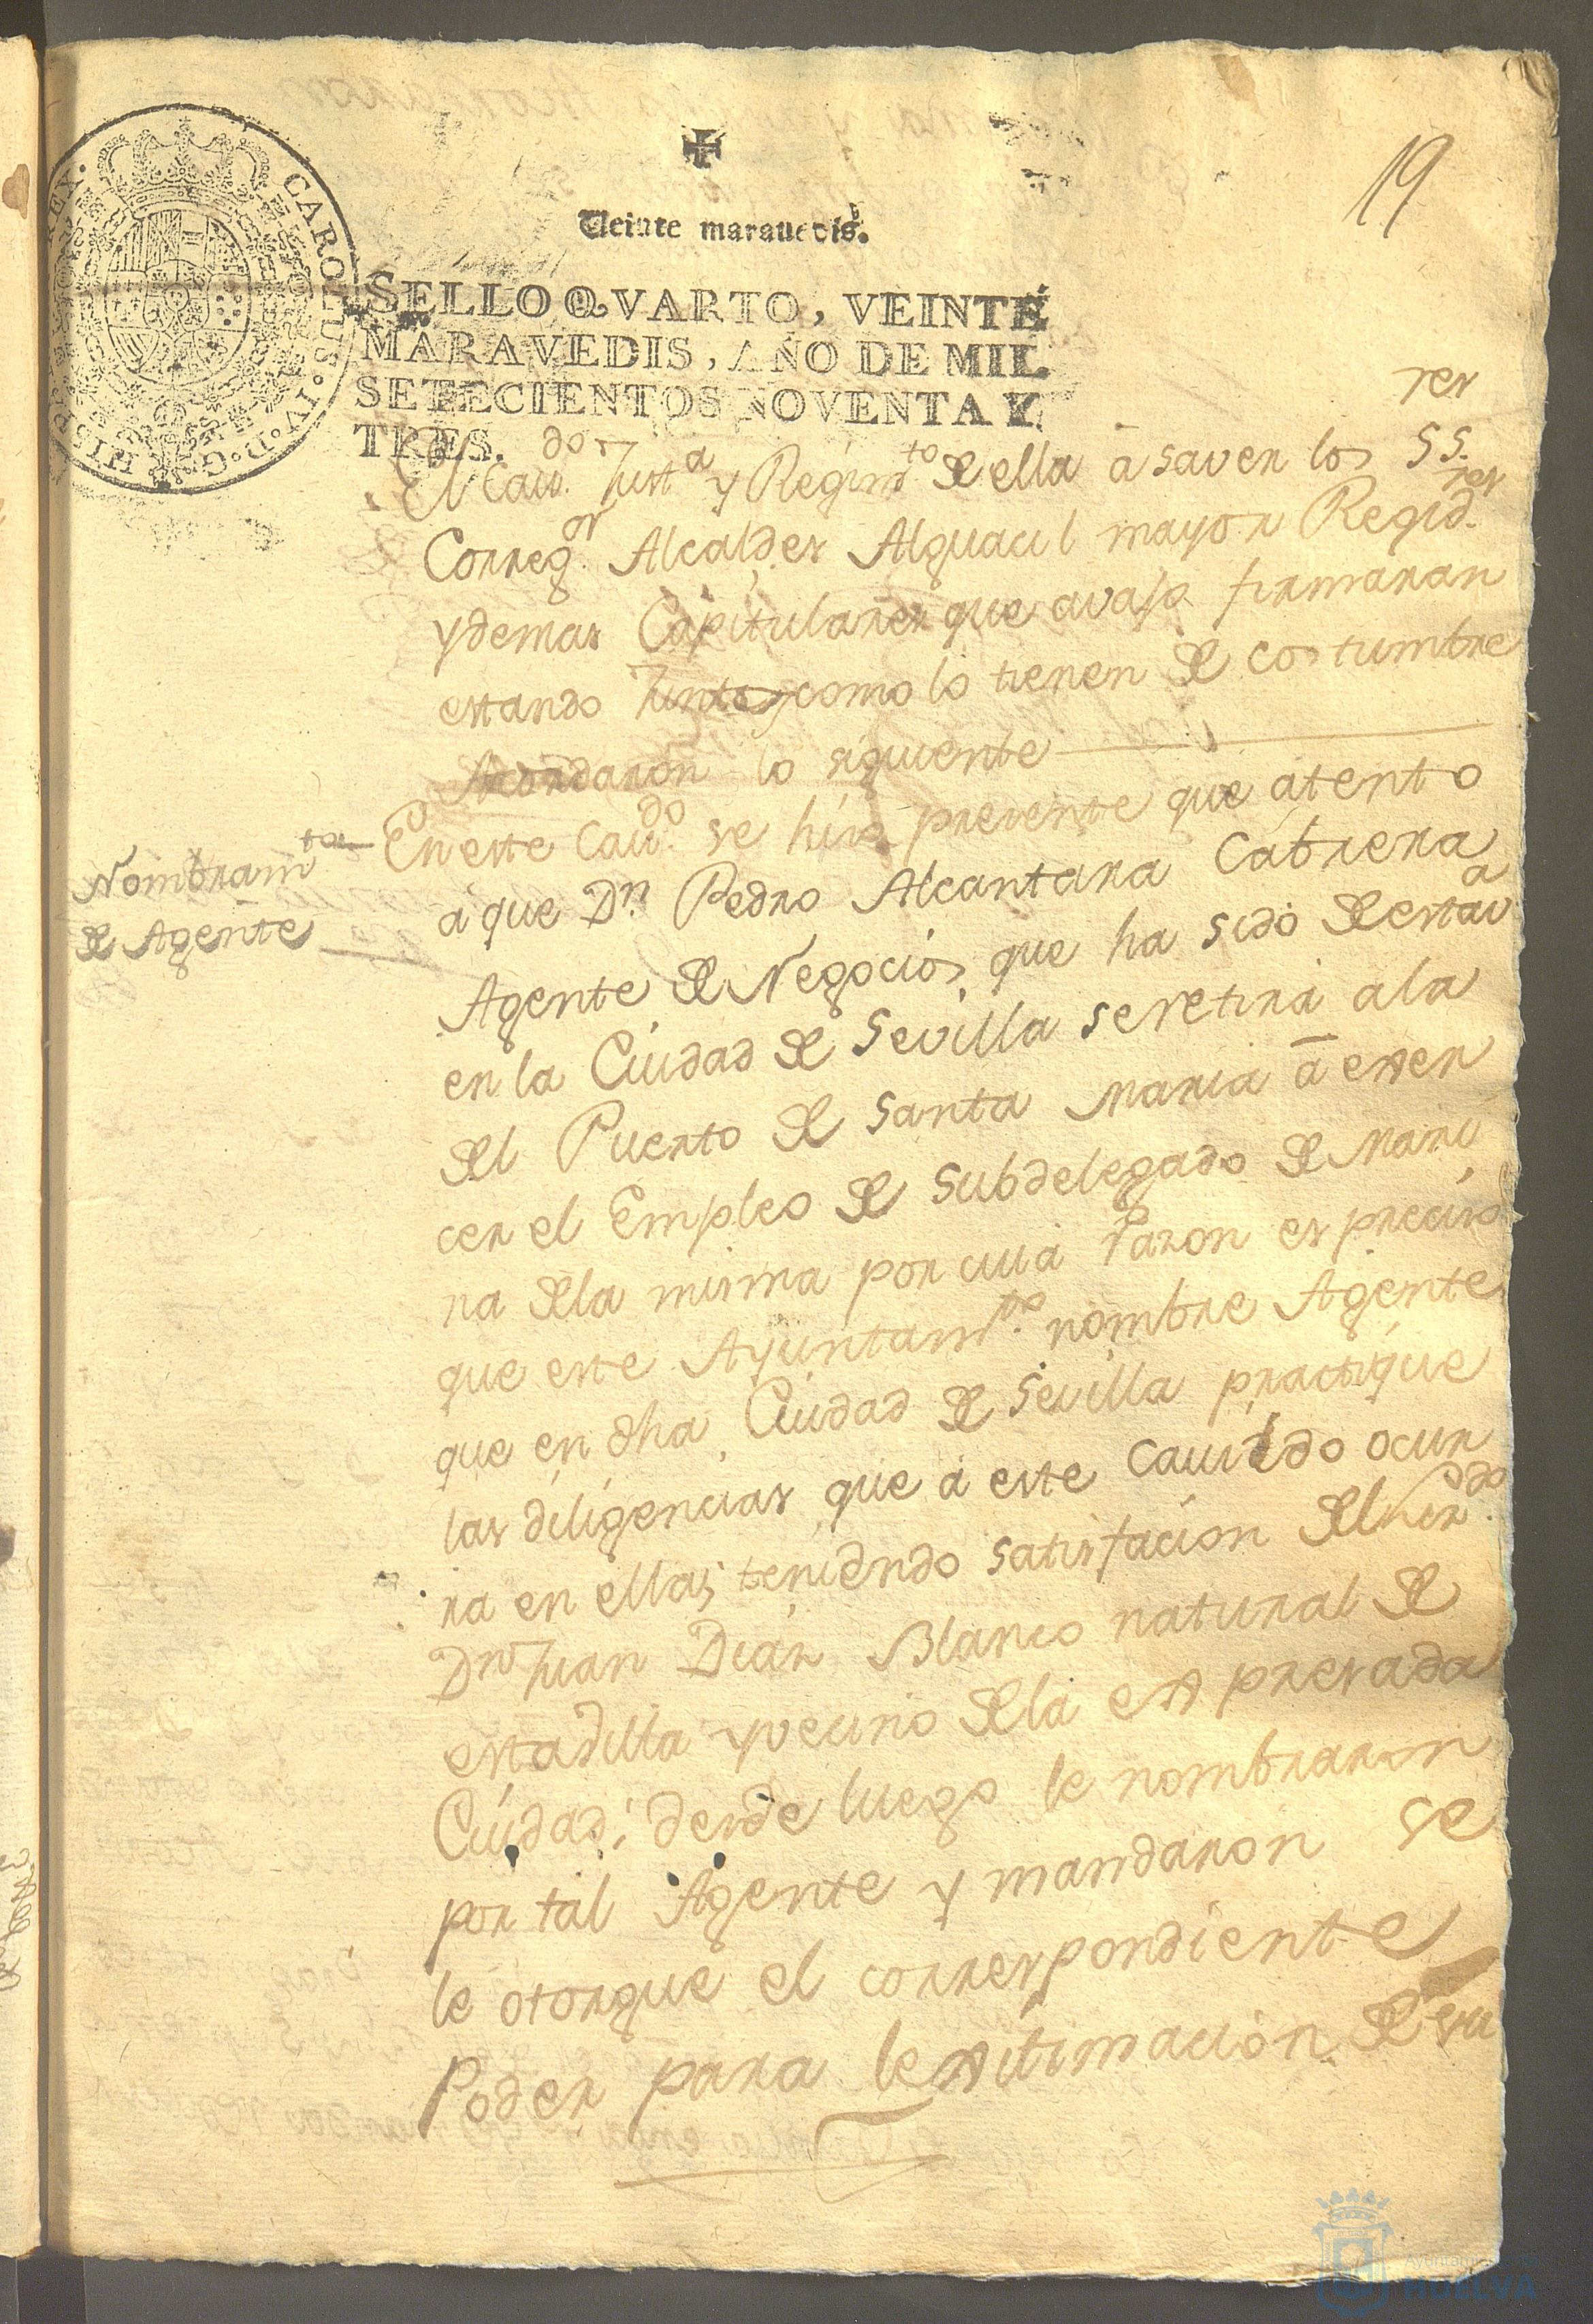 19
Veinte maravedis.
CAROLUS·IV·D·G·HISP
REX·
SELLO QVARTO, VEINTE
MARAVEDIS, AÑO DE MIL
SETECIENTOS NOVENTA Y
TRES.
El Cav.do Just.a y Regim.to de ella á saver los SS.res
Correg.or Alcaldes Alguacil mayor Regid.res
y demas Capitulares que avajo firmaran
estando Juntos como lo tienen de costumbre
Acordaron lo siguiente
Nombram.to
de Agente
En este Cav.do se hiso presente que atento
a que D.n Pedro Alcantara Cabrera
Agente de Negocios que ha sido de esta v.a
en la Ciudad de Sevilla se retira a la
del Puerto de Santa Maria á exer
cer el Empleo de Subdelegado de Mari
na de la misma por cuia razon es preciso
que este Ayuntam.to nombre Agente
que en dha Ciudad de Sevilla practique
las diligencias que á este Cavildo ocur
ra en ella; teniendo satisfacion del
Dn Juan Diaz Blanco natural de
esta dilla y vecino de la expresada
Ciudad; desde luego le nombraron
por tal Agente y mandaron se
le otorgue el correspondiente
Poder para lexitimacion de su
Ayuntam
HUELVA